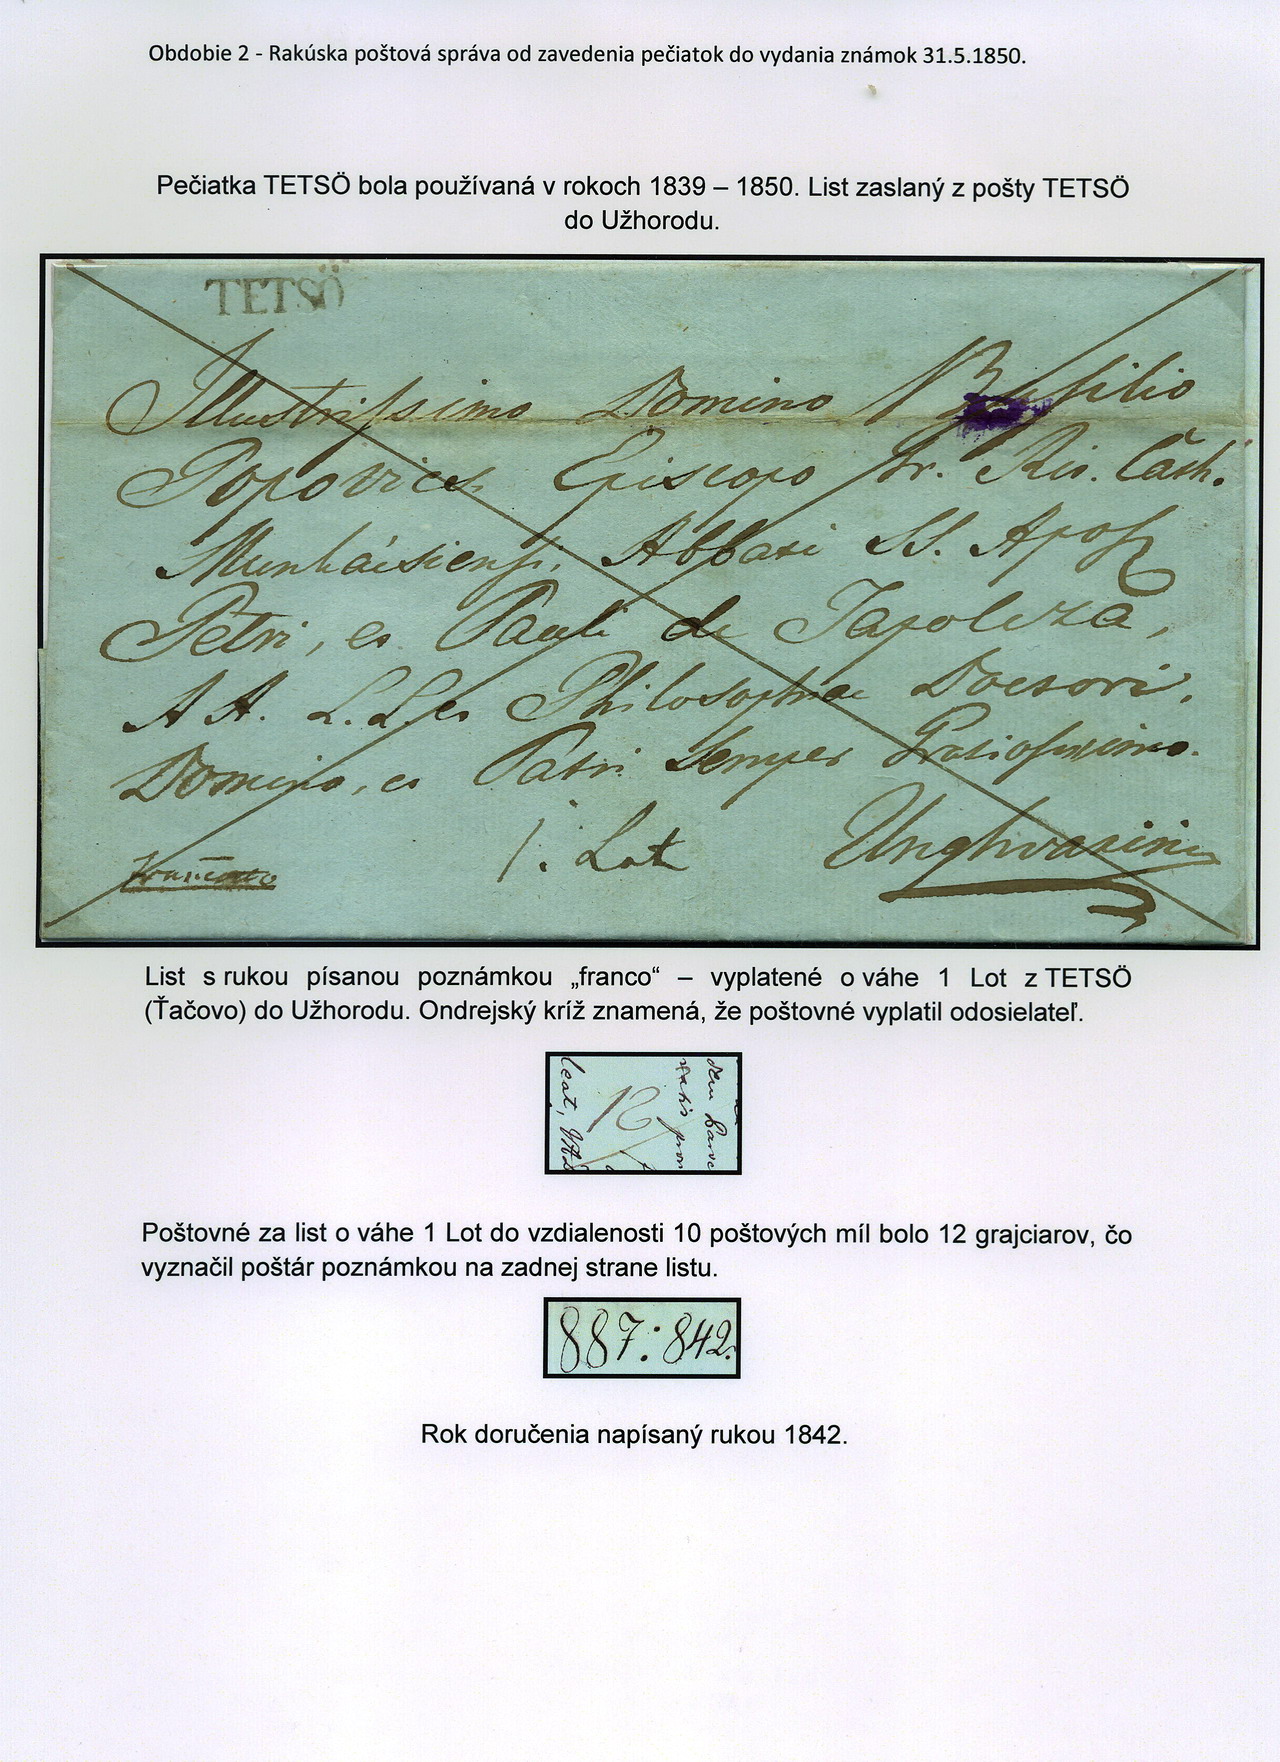 Obdobie 2 - Rakúska poštová správa od zavedenia pečiatok do vydania známok 31.5.1850.
Pečiatka TETSÖ bola používaná v rokoch 1839 – 1850. List zaslaný z pošty TETSÖ
do Užhorodu.
TETSÖ
Illustrissimo Domino Basilio
Popovics Episcopo Gr. Rit. Cath.
Munkácsiensi, Abbati SS. Apost
Petri, et Pauli de Tapolcza,
A A. L.L. et Philosophiae Doctori,
Domino, et Patri Semper Gratiosissimo.
1. Lot Unghvarini
List s rukou písanou poznámkou „franco“ – vyplatené o váhe 1 Lot z TETSÖ
(Ťačovo) do Užhorodu. Ondrejský kríž znamená, že poštovné vyplatil odosielateľ.
12
Poštovné za list o váhe 1 Lot do vzdialenosti 10 poštových míl bolo 12 grajciarov, čo
vyznačil poštár poznámkou na zadnej strane listu.
887:842.
Rok doručenia napísaný rukou 1842.